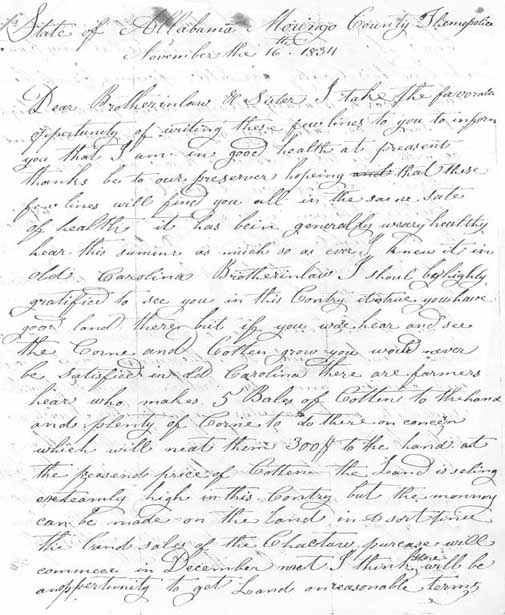 State of Allabama Morengo County Themopolice
November the 16th 1834
Dear Brotherinlaw & Sister I take the favorable
opportunity of writing these few lines to you to inform
you that I am in good health at preasent
thanks be to our preserver hopeing and that these
few lines will find you all in the same state
of health it has been generaldy weary healthy
hear this summr as much so as ever I knew it in
old Carolina Brotherinlaw I shoul be highly
gratified to see you in this Contry it is true you have
good land there but if you was hear and see
the Corne and Cotten grow you would never
be satisfied in old Carolina there are farmers
hear who makes 5 Bales of Cotten to the hand
and plenty of Corne to do there on concern
which will neat them 300$ to the hand at
the preasend price of Cotten the Land is seling
extreamly high in this Contry but the monney
can be made on the Land in a sort time
the Land sales of the Chactaw purcase will
commece in December next I think there will be
an oppertunity to get Land on reasonable terms